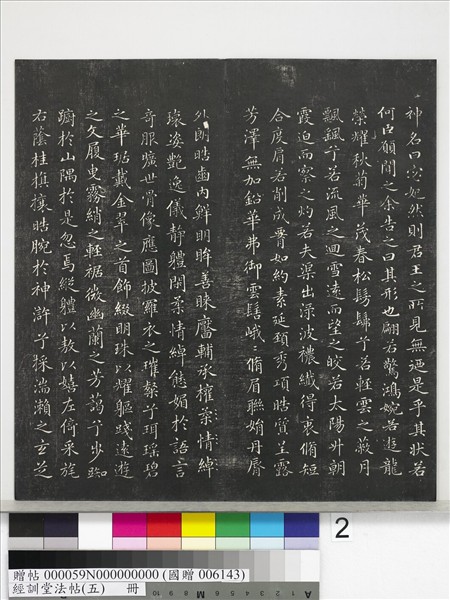 神名曰宓妃然則君王之所見無迺是乎其狀若
何臣願聞之余告之曰其形也翩若驚鴻婉若遊龍
榮耀秋菊華茂春松髣髴兮若輕雲之蔽月
飄颻兮若流風之迴雪遠而望之皎若太陽升朝
霞迫而察之灼若夫渠出淥波穠纖得衷脩短
合度肩若削成腰如約素延頸秀項皓質呈露
芳澤無加鉛華弗御雲髻峨峨脩眉聯娟丹脣
外朗皓齒內鮮明眸善睞靨輔承權柔情綽
瓌姿艷逸儀靜體閑柔情綽態媚於語言
奇服曠世骨像應圖披羅衣之璀粲兮珥瑤碧
之華琚戴金翠之首飾綴明珠以耀軀踐遠遊
之文履曳霧綃之輕裾微幽蘭之芳藹兮步踟
躕於山隅於是忽焉縱體以敖以嬉左倚采旄
右蔭桂旗攘皓腕於神滸兮採湍瀨之玄芝
2
贈帖 000059N000000000 (國贈 006143)
經訓堂法帖(五) 冊